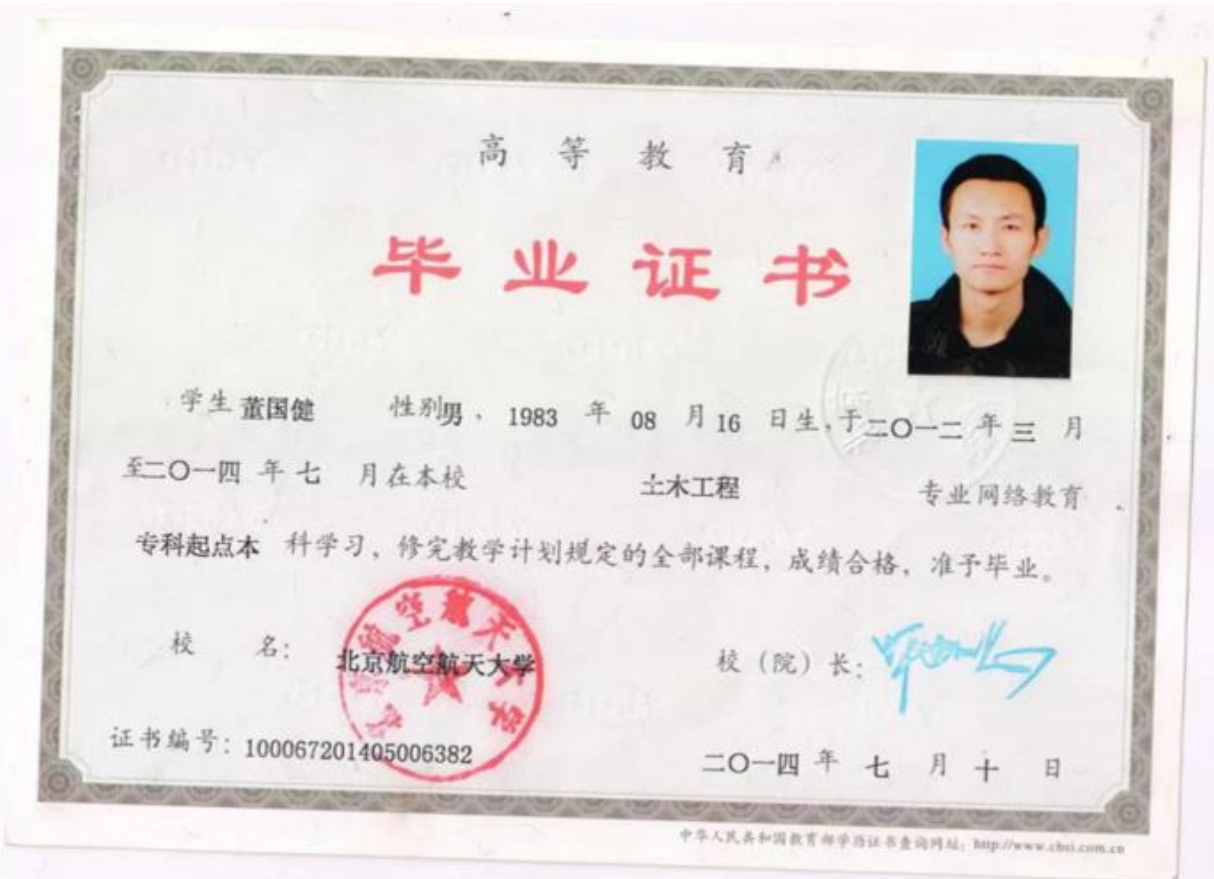 高等教育
毕业证书
学生 董国健 性别男，1983 年 08 月 16 日生，于二〇一二 年 三 月
至二〇一四 年 七 月在本校 土木工程 专业网络教育
专科起点本 科学习，修完教学计划规定的全部课程，成绩合格，准予毕业。
校 名： 北京航空航天大学
校（院）长：
证书编号：100067201405006382
二〇一四 年 七 月 十 日
中华人民共和国教育部学历证书查询网址：http://www.chsi.com.cn